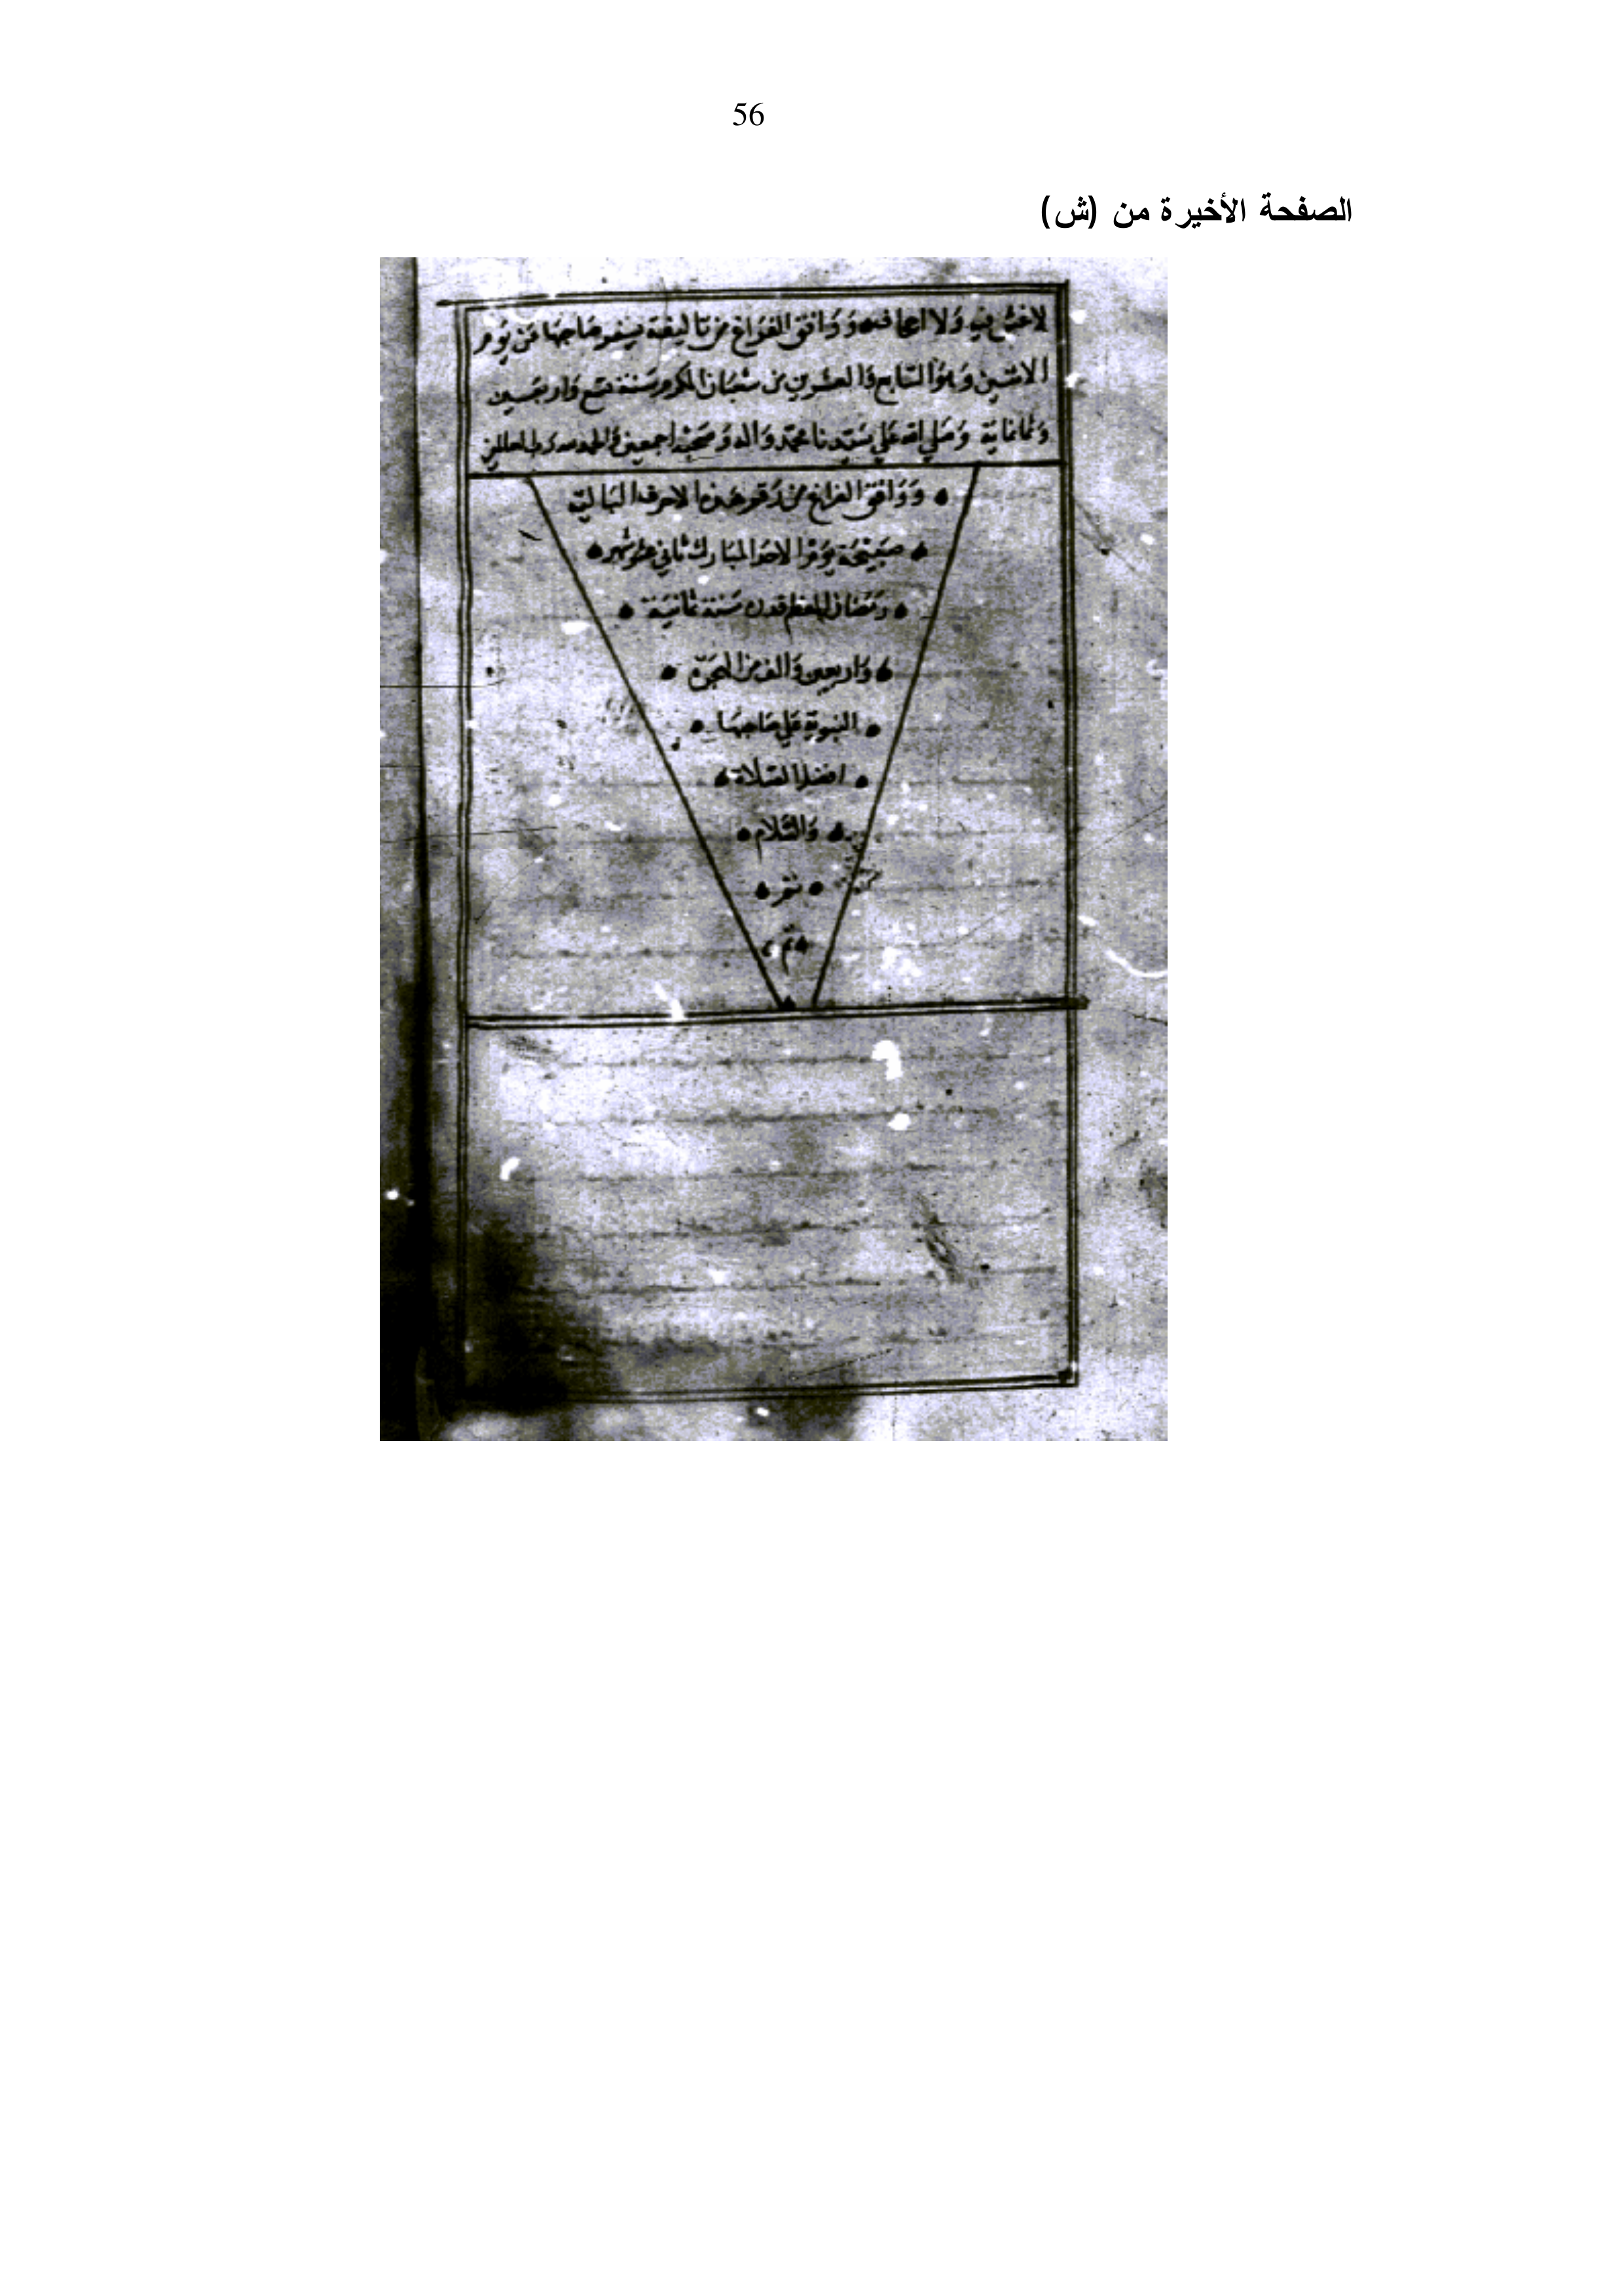 56
الصفحة الأخيرة من (ش)
ولا ووافق الفراغ من تاليفه يوم
الاثنين وهو السابع والعشرين من شعبان المكرم سنة تسع واربعين
وثمانماية وصلى الله على سيدنا محمد واله وصحبه اجمعين والحمد لله رب العالمين
ووافق الفراغ من رقم هذه الاحرف البالية
صبيحة يوم الاحد المبارك ثاني عشر شهر
رمضان المعظم قدره سنة ثمانية
واربعين والف من الهجرة
النبوية على صاحبها
افضل الصلاة
والسلام
تم
تم